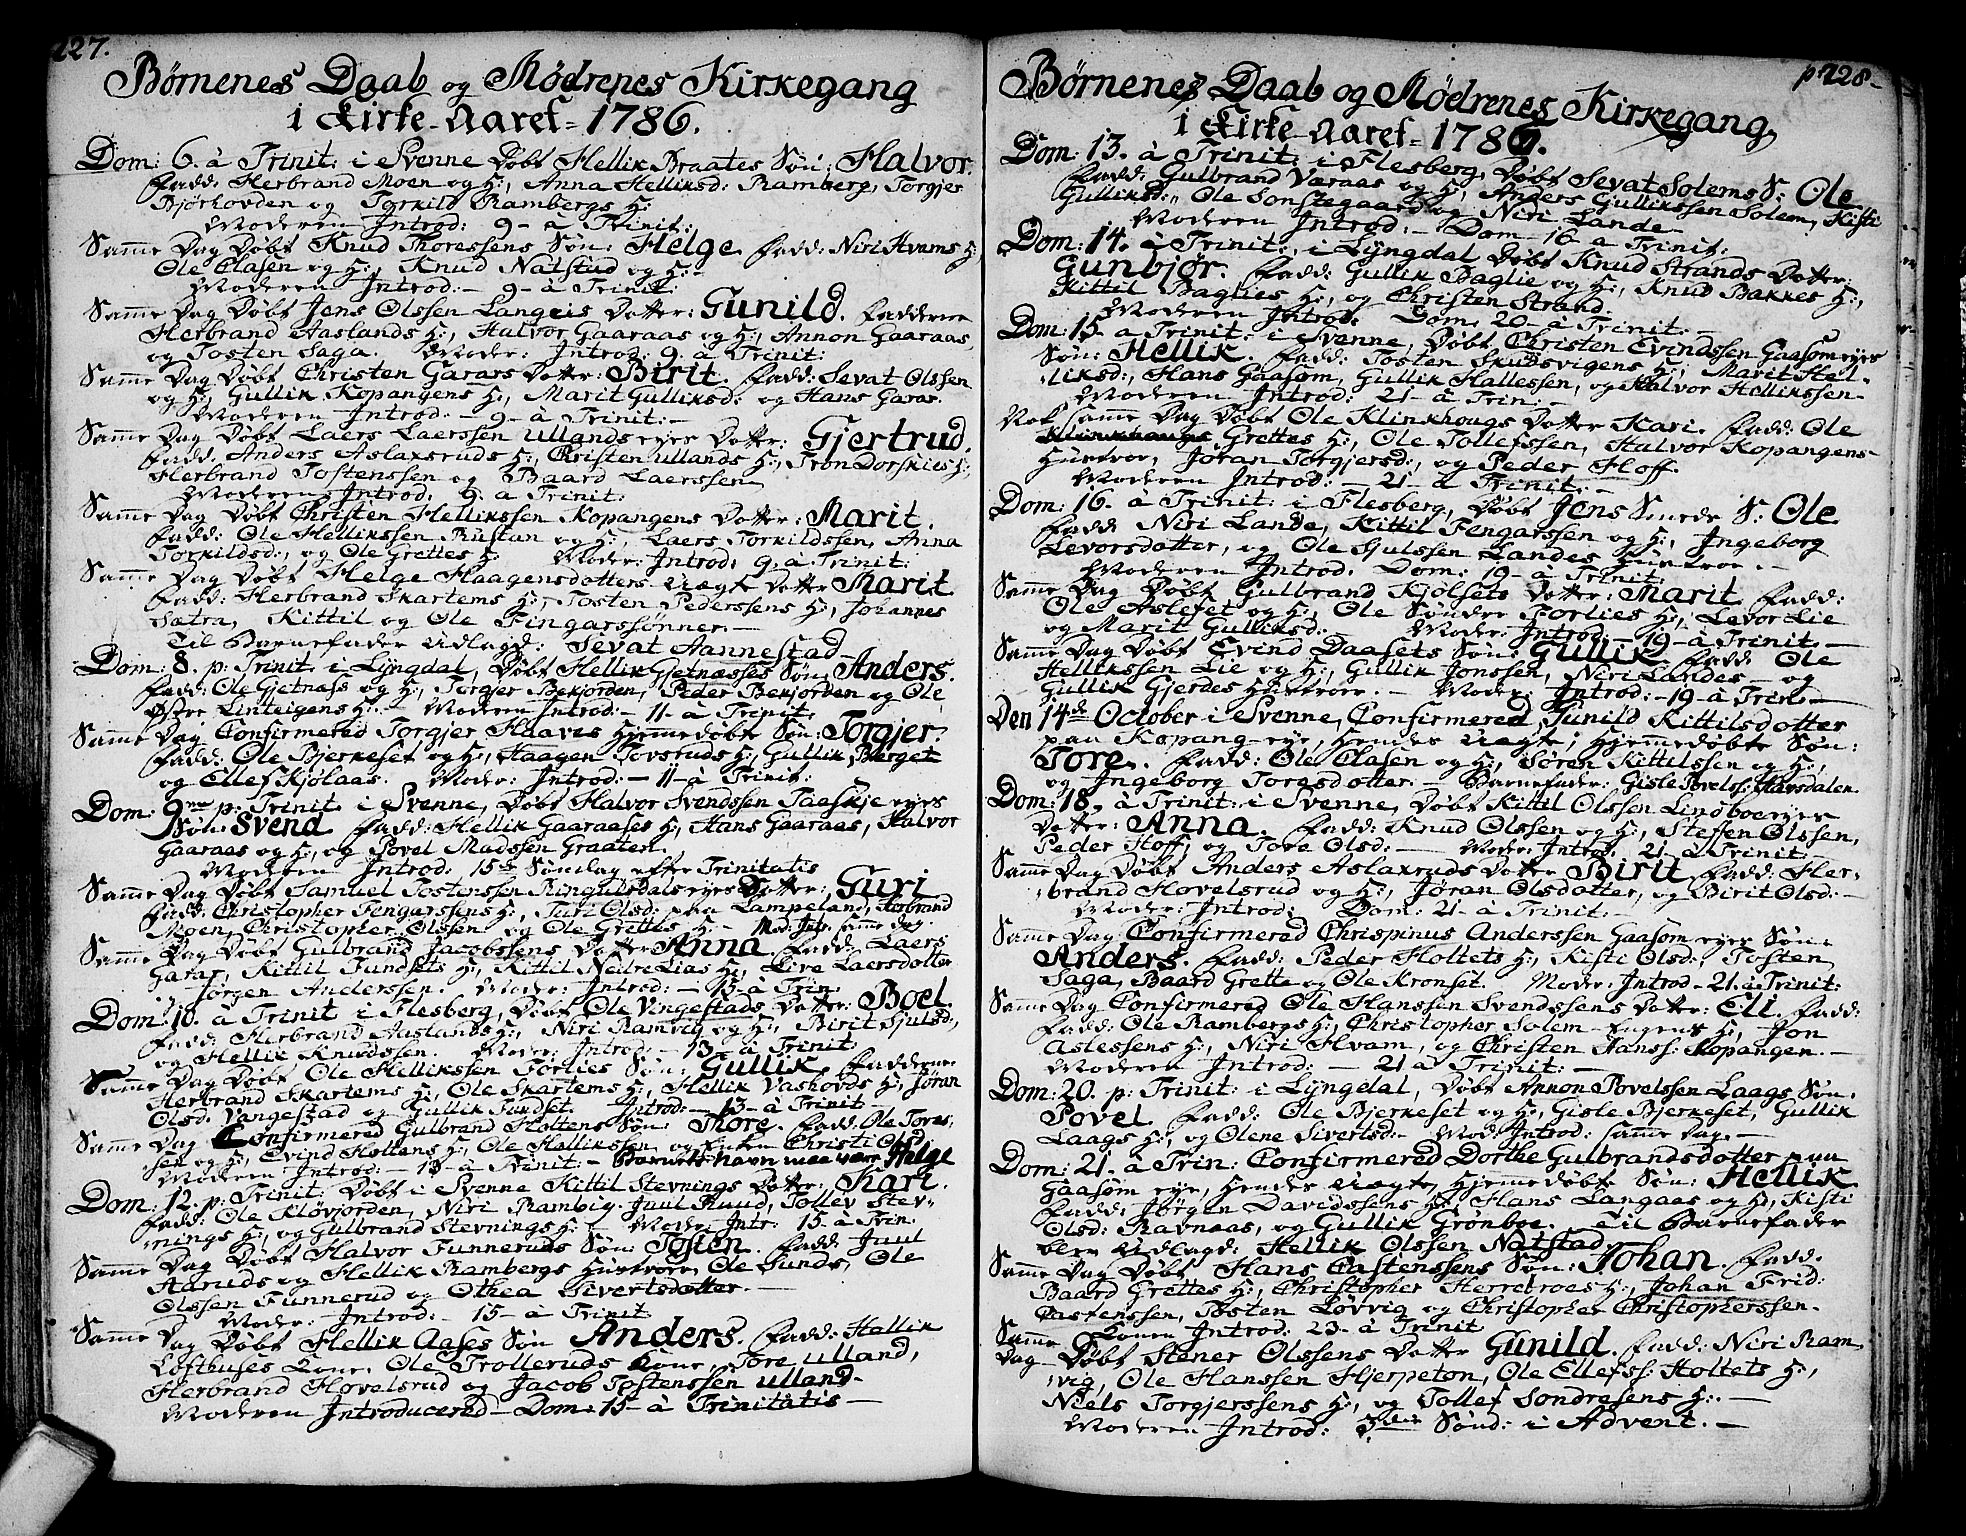 127.
Børnenes Daab og Mødrenes Kirkegang
i Kirke-Aaret 1786.
Dom: 6. à Trinit: i Svenne Døbt Hellik Braates Søn: Halvor.
Fadd: Herbrand Moen og H:, Anna Helliksd: Ramberg, Torgjer
Bjørhovden og Torkild Rambergs H:
Moderen Introd: 9- à Trinit:
Samme Dag Døbt Knud Thoressens Søn: Helge. Fadd: Niri Hvams H:,
Ole Clasen og H:, Knud Natstud og H:-
Moderen Introd:- 9- à Trinit:
Samme Dag Døbt Jens Olssen Langeis Dotter: Gunild. Faddere
Herbrand Aaslands H:, Halvor Gaaraas og H:, Annon Gaaraas,
og Tosten Saga. Moder: Introd: 9. à Trinit:
Samme Dag Døbt Christen Garars Dotter: Birit. Fadd: Sevat Olssen
og H:, Gullik Kopangens H:, Marit Gulliksd: og Hans Garas.
Moderen Introd:- 9- à Trinit:-
Samme Dag Døbt Laers Laerssen Ullands eyes Dotter: Gjertrud.
Fadd: Anders Aslaxruds H:, Christen Ullands H:, Tron Dorskies H:,
Herbrand Tostenssen og Baard Laerssen
Moderen Introd: 9. a Trinit:
Samme Dag Døbt Christen Hellikssen Kopangens Dotter: Marit.
Fadd: Ole Hellikssen Rustan og H:, Laers Torkildssen, Anna
Torkildsd:, og Ole Grettes H: Moder: Introd: 9. à Trinit:
Samme Dag Døbt Helge Haagensdotters uægte Dotter Marit
Fadd: Herbrand Skartems H:, Tosten Pederssens H:, Johannes
Sætra, Kittil og Ole Fingarssønner.-
Til Barnefader Udlagd: Sevat Aannestad
Dom: 8. p: Trinit: i Lyngdal, Døbt Hellik Gjetnæsses Søn: Anders.
Fadd: Ole Gjetnæss og H:, Torgjer Bekjorden, Peder Bekjorden og Ole
Østre Linteigens H: - Moderen Introd:- 11- à Trinit.
Samme Dag Confirmered Torgjer Haaves Hjemmedøbte Søn: Torgjer.
Fadd: Ole Bjerkeset og H:, Haagen Tovsruds H:, Gullik Berget
og Ellef Kjølaas. Moder: Introd:- 11- à Trinit:
Dom: 9ne p: Trinit. i Svenne, Døbt Halvor Svendssen Taaskje eyes
Søn: Svend. Fadd: Hellik Gaaraases H:, Hans Gaaraas, Halvor
Gaaraas og H:, og Povel Madssen Graaten.
Moderen Introd: 15de Søndag efter Trinitatis
Samme Dag Døbt Samuel Tostenssen Ringulsdals eyes Dotter: Guri
Fadd: Christopher Fengarssens H:, Turi Olsd: paa Lampeland, Herbrand
Moen, Christopher Olssen og Ole Grettes H:- Mod: Intr. samme dag.
Samme Dag Døbt Gulbrand Jacobssens Dotter Anna. Fadd: Laers
Garas, Kittil Fundsets H:, Kittil Nedre Lias H:, Live Laersdotter
Jørgen Anderssen. Moder: Introd:- 15- à Trin.
Dom: 10. a Trinit i Flesberg, Døbt Ole Vingestads Dotter: Boel.
Fadd: Herbrand Aaslands H:, Niri Ramvig og H:, Birit Sjulsd:,
og Hellik Knudssen. Moder: Introd:- 13- à Trinit
Samme Dag Døbt Ole Hellikssen Forlies Søn: Gullik. Faddere
Herbrand Skartems H:, Ole Skartems H:, Hellik Vashovds H:, Jøran
Olsd: Vangestad og Gullik Fundset. Introd:- 13- à Trinit
Samme Dag Confirmered Gulbrand Holtens Søn: Thore. Fadd: Ole Tores-
sen og H:, Evind Holtens H:, Ole Hallikssen og Enken Christi Olsd:
Moderen Introd:- 13- à Trinit:- Barnets navn maa være Helge
Dom: 12. p: Trinit: Døbt i Svenne Kittil Stevnings Dotter: Kari.
Fadd: Ole Kløvjorden, Niri Rambig, Juul Ruud, Tollev Stev-
nings H:, og Gulbrand Stevnings H: - Moder: Intr: 15- à Trin.
Samme Dag Døbt Halvor Funneruds Søn: Tosten. Fadd: Juul
Aaruds og Hellik Rambergs Hustroer, Ole Sunds, Ole
Olssen Funnerud og Othea Sivertsdotter.-
Moder: Introd:- 15- à Trinit
Samme Dag Døbt Hellik Aases Søn Anders. Fadd: Hallik
Lofthuses Kone, Ole Trolleruds Kone, Tore Ulland,
Herbrand Hovelsrud og Jacob Tostenssen Ulland-
Moderen Introducered- Dom: 15- à Trinitatis-
p. 128-
Børnenes Daab og Mødrenes Kirkegang
i Kirke-Aaret 1786.
Dom: 13. à Trinit: i Flesberg, Døbt Sevat Solems S: Ole
Fadd: Gulbrand Varaas og H:, Anders Gullikssen Solem, Kisti
Gulliksd:, Ole Sonstegaard og Niri Lande
Moderen Introd:- Dom- 16- a Trinit:
Dom: 14. à Trinit: i Lyngdal Døbt Knud Strands Dotter:
Gunbjør. Fadd: Gullik Baglie og H:, Knud Bakkes H:,
Kittil Baglies H:, og Christen Strand.
Moderen Introd: Dom: 20- à Trinit:-
Dom: 15- a Trinit: i Svenne, Døbt Christen Evindssen Gaasom eyes
Søn: Hellik. Fadd: Tosten Skudsvigens H:, Marit Hel-
liksd:, Hans Gaasom, Gullik Hallessen, og Halvor Hellikssen-
Moderen Introd: 21- à Trin:-
Nok samme Dag Døbt Ole Klinkhougs Dotter Kari. Fadd: Ole
Klinkhougs Grettes H:, Ole Tollefssen, Halvor Kopangens
Hustroe, Jøran Torgjersd:, og Peder Hoff.
Moderen Introd:- 21- à Trinit:-
Dom: 16. à Trinit: i Flesberg, Døbt Jens Smede S: Ole
Fadd: Niri Lande, Kittil Fengarssen og H:, Ingeborg
Levorsdotter, og Ole Sjulssen Landes Hustroe.-
Moderen Introd: Dom: 19- à Trinit:
Samme Dag Døbt Gulbrand Kjølsets Dotter: Marit. Fadd:
Ole Aslefet og H:, Ole Søndre Forlies H:, Levor Lie
og Marit Gulliksd: Moder: Introd:- 19- à Trinit.-
Samme Dag Døbt Evind Daasets Søn: Gullik. Fadd: Ole
Hellikssen Lie og H:, Gullik Jonssen, Niri Landes- og
Gullik Gjerdes Hustroer.- Moder: Introd:- 19- à Trin:-
Den 14de October i Svenne, Confirmered Gunild Kittilsdotter
paa Kopang-eye, Hendes uægte, Hjemmedøbte Søn:
Tore. Fadd: Ole Clasen og H:, Søren Kittilssen og H:,
og Ingeborg Toresdotter.- Barnefader: Gisle Povelss: Havsdalen.
Dom: 18. à Trinit: i Svenne, Døbt Kittil Olssen Lindboe eyes
Dotter: Anna. Fadd: Knud Olssen og H:, Steffen Olssen,
Peder Hoff, og Tore Olsd:- Moder: Introd: 21- à Trinit:
Samme Dag Døbt Anders Aslaxruds Dotter Birit. Fadd: Her-
brand Hovelsrud og H:, Jøran Olsdotter, og Birit Olsd:-
Moder: Introd: Dom: 21- à Trinit:-
Samme Dag Confirmered Chrispinus Anderssen Gaasom eyes Søn:
Anders. Fadd: Peder Holtets H:, Kisti Olsd:, Tosten
Saga, Baard Grette og Ole Kronset. Moder Introd- 21. à Trinit:
Samme Dag Confirmered Ole Hanssen Svendssens Dotter: Eli. Fadd:
Fadd: Ole Rambergs H:, Christopher Solem- Engens H:, Jon
Aslessens H:, Niri Hvam, og Christen Hanss: Kopangen.-
Moderen Introd:- 21 à Trinit:-
Dom: 20. p: Trinit: i Lyngdal, Døbt Annon Povelssen Laags Søn:
Povel. Fadd: Ole Bjerkeset og H:, Gisle Bjerkeset, Gullik
Laags H:, og Olene Sivertsd:- Mod: Introd: samme Dag.-
Dom: 21. à Trin: Confirmered Dorthe Gulbrandsdotter paa
Gaasom eye, Hendes uægte, Hjemmedøbte Søn: Hellik
Fadd: Jørgen Davidssens H:, Hans Langaas og H:, Kisti
Olsd: Ravnaas, og Gullik Grønboe. Til Barnefader
blev udlagd: Hellik Olssen Natstad.
Samme Dag Døbt Hans Castenssens Søn: Johan. Fadd:
Baard Grettes H:, Christopher Herretroes H:, Johan Frid:
Castenssen, Tosten Lovvig og Christopher Christopherssen.
Konen Introd: 23- à Trinit
Samme Dag- Døbt Stener Olssens Dotter Gunild. Fadd: Niri Ram
vig, Ole Hanssen Hjerpeton, Ole Ellefss: Holtets H:,
Niels Torgjerssens H:, og Tollef Sondresens H:.-
Moderen Introd: 3die Sønd: i Advent.-